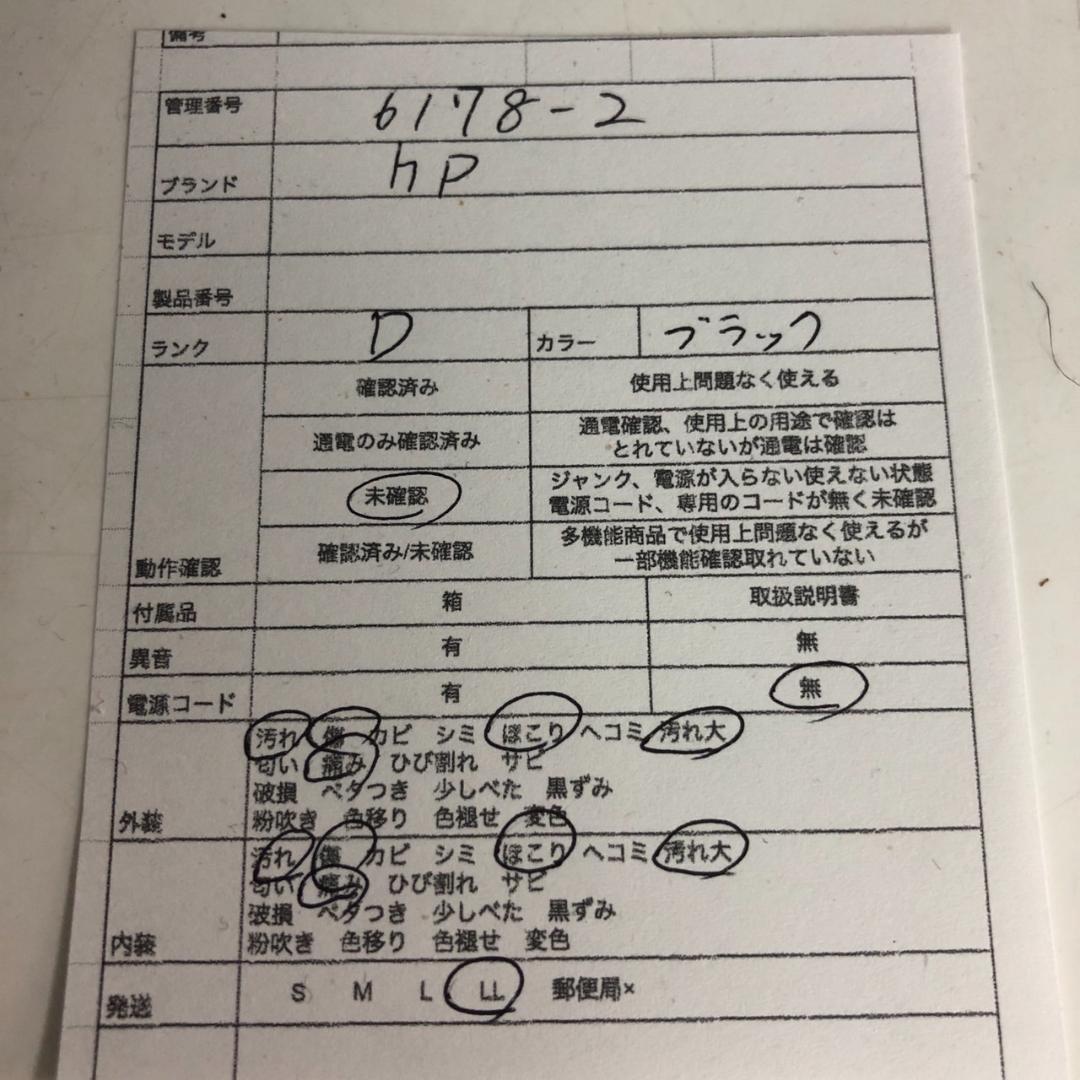 備考
管理番号 6178-2
ブランド hp
モデル
製品番号
ランク D カラー ブラック
確認済み 使用上問題なく使える
通電のみ確認済み 通電確認、使用上の用途で確認は
とれていないが通電は確認
未確認 ジャンク、電源が入らない使えない状態
電源コード、専用のコードが無く未確認
確認済み/未確認 多機能商品で使用上問題なく使えるが
一部機能確認取れていない
動作確認
付属品 箱 取扱説明書
異音 有 無
電源コード 有 無
汚れ 傷 カビ シミ ほこり ヘコミ 汚れ大
匂い 痛み ひび割れ サビ
破損 ベタつき 少しべた 黒ずみ
外装 粉吹き 色移り 色褪せ 変色
汚れ 傷 カビ シミ ほこり ヘコミ 汚れ大
匂い 痛み ひび割れ サビ
破損 ベタつき 少しべた 黒ずみ
内装 粉吹き 色移り 色褪せ 変色
発送 S M L LL 郵便局×